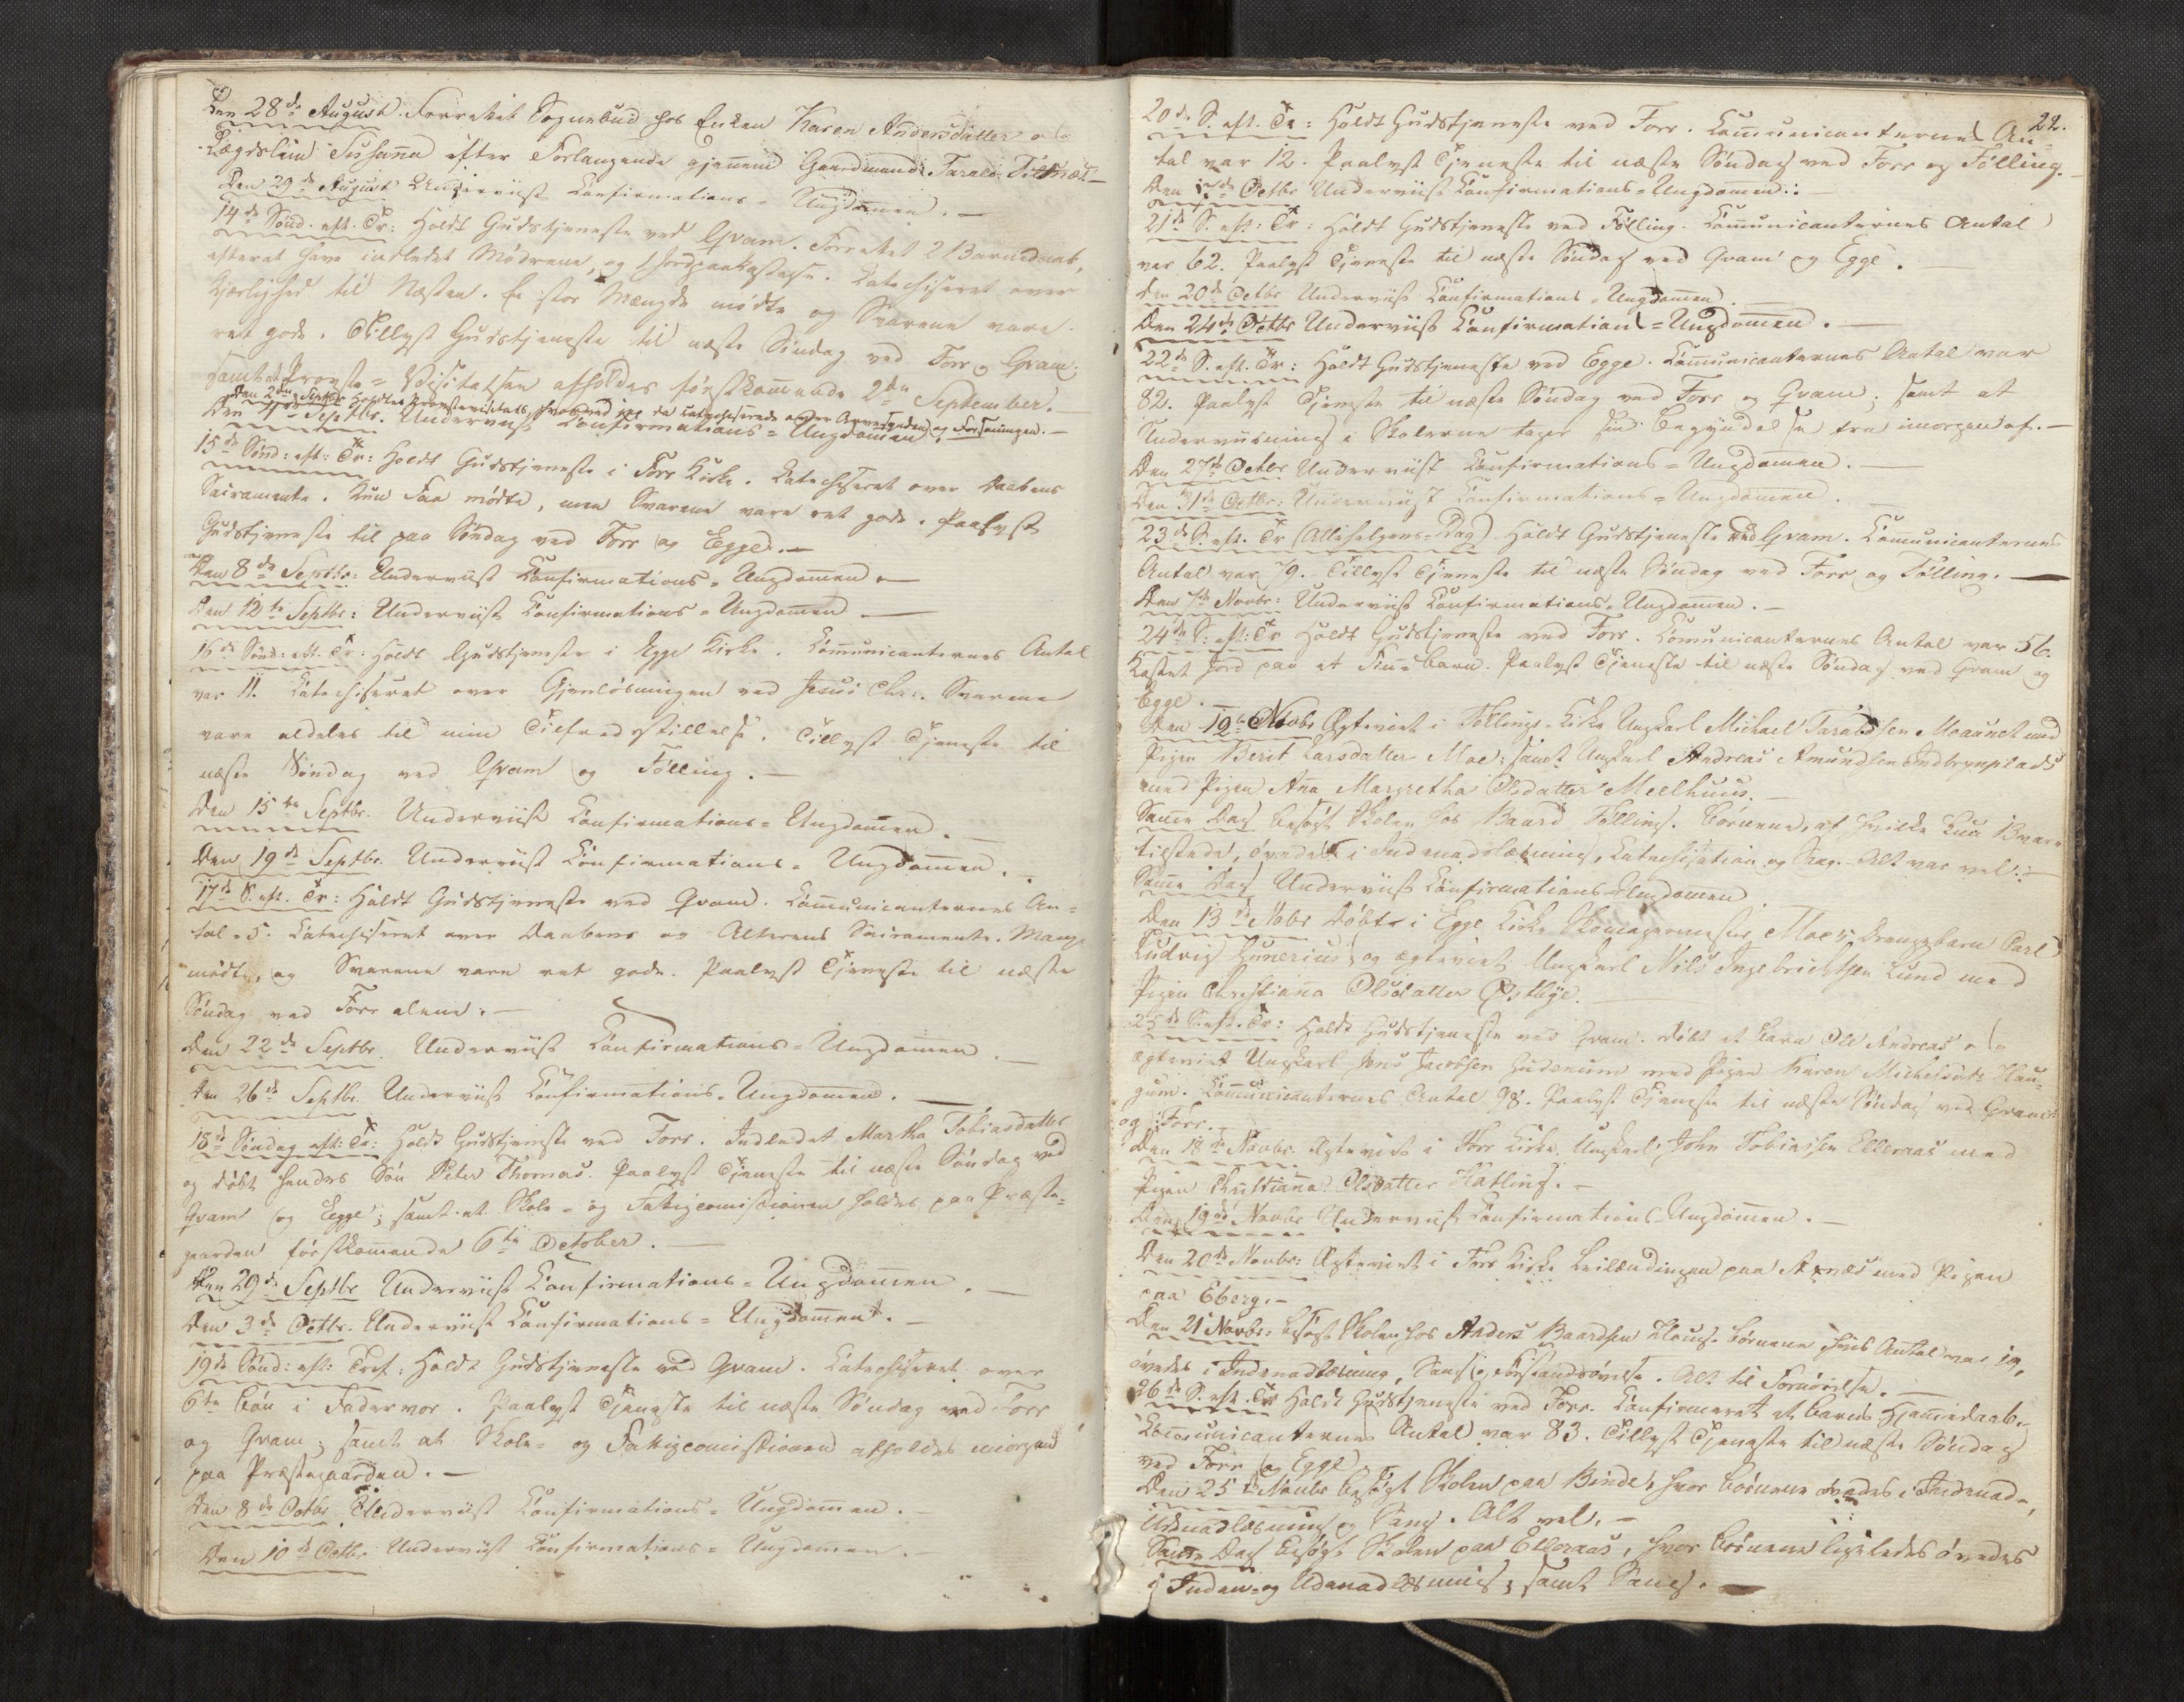 Den 28de August. Forrettet Sognebud hos Enken Karen Andersdatter og
Lægdslem Susanna efter Forlangende gjennem Gaardmand Tarald
Den 29de August Underviist Confirmations-Ungdommen.—
14de Sønd. eft. Tr: Holdt Gudstjeneste ved Qvam. Forrettet 2 Barnedaab,
efterat have indledet Mødrene, og 1 Jordpaakastelse. Catechiseret over
Kjærlighed til Næsten. En stor Mængde mødte og Svarene vare
ret gode. Tillyst Gudstjeneste til næste Søndag ved Forr og Qvam;
samt at Provste-Visitatsen afholdes førstkommende 2den September.—
Den 2den Septbr. holdtes Provstevisitats, hvorved jeg catechiserede over Arvesynden og Forsoningen.—
Den 4de Septbr. Underviist Confirmations-Ungdommen.
15de Sønd: eft: Tr: Holdt Gudstjeneste i Forr Kirke. Catechiseret over Daabens
Sacramente. Kun Faa mødte, men Svarene vare ret gode. Paalyst
Gudstjeneste til paa Søndag ved Forr og Egge.—
Den 8de Septbr: Underviist Confirmations-Ungdommen.—
Den 12te Septbr: Underviist Confirmations-Ungdommen.—
16de Sønd: eft: Tr: Holdt Gudstjeneste i Egge Kirke. Communicanternes Antal
var 11. Catechiseret over Gjenløsningen ved Jesus Chr:. Svarene
vare aldeles til min Tilfredsstillelse. Tillyst Tjeneste til
næste Søndag ved Qvam og Følling.—
Den 15de Septbr. Underviist Confirmations-Ungdommen.—
Den 19de Septbr. Underviist Confirmations-Ungdommen.—
17de S. eft. Tr: Holdt Gudstjeneste ved Qvam. Communicanternes An=
tal 5. Catechiseret over Daabens og Alterens Sacramente. Mange
mødte, og Svarene vare ret gode. Paalyst Tjeneste til næste
Søndag ved Forr alene.—
Den 22de Septbr. Underviist Confirmations-Ungdommen.—
Den 26de Septbr. Underviist Confirmations-Ungdommen.—
18de Søndag eft: Tr: Holdt Gudstjeneste ved Forr. Indledet Martha Tobiasdatter
og døbt hendes Søn Peter Thomas. Paalyst Tjeneste til næste Søndag ved
Qvam og Egge; samt at Skole- og Fattigcommissionen holdes paa Præste=
gaarden førstkommende 6te October.—
Den 29de Septbr Underviist Confirmations-Ungdommen.—
Den 3de Octbr. Underviist Confirmations-Ungdommen.—
19de Sønd: eft: Tref: Holdt Gudstjeneste ved Qvam. Catechiseret over
6te Bøn i Fadervor. Paalyst Tjeneste til næste Søndag ved Forr
og Qvam; samt at Skole- og Fattigcommissionen afholdes imorgen
paa Præstegaarden.—
Den 8de Octbr. Underviist Confirmations-Ungdommen.—
Den 10de Octbr Underviist Confirmations-Ungdommen.
22.
20de S. eft. Tr: Holdt Gudstjeneste ved Forr. Communicanternes An=
tal var 12. Paalyst Tjeneste til næste Søndag ved Forr og Følling.—
Den Octbr Underviist Confirmations-Ungdommen.—
21de S. eft: Tr: Holdt Gudstjeneste ved Følling. Communicanternes Antal
var 62. Paalyst Tjeneste til næste Søndag ved Qvam og Egge.—
Den 20de Octbr Underviist Confirmations-Ungdommen.—
Den 24de Octbr Underviist Confirmations-Ungdommen.—
22de S. eft. Tr: Holdt Gudstjeneste ved Egge. Communicanternes Antal var
82. Paalyst Tjeneste til næste Søndag ved Forr og Qvam; samt at
Underviisning i Skolerne tager sin Begyndelse fra imorgen af.—
Den 27de Octbr Underviist Confirmations-Ungdommen.—
Den 31de Octbr: Underviist Confirmations-Ungdommen.
23de S. eft. Tr (Allehelgens-Dag) Holdt Gudstjeneste ved Qvam. Communicanternes
Antal var 79. Tillyst Tjeneste til næste Søndag ved Forr og Følling.—
Den 7de Novbr: Underviist Confirmations-Ungdommen.—
24de S: eft: Tr Holdt Gudstjeneste ved Forr. Communicanternes Antal var 56.
Kastet Jord paa et Fin-Barn. Paalyst Tjeneste til næste Søndag ved Qvam og
Egge.—
Den Novbr Ægteviet i Føllings-Kirke Ungkarl Michael Taraldsen Moaunet med
Pigen Berit Larsdatter Moe; samt Ungkarl Andreas Amundsen
med Pigen Ana Margretha Olsdatter Meelhuus.—
Samme Dag besøgt Skolen hos Baard Følling. Børnene, af hvilke kun 13 vare
tilstede, øvedes i Indenadslæsning, Catechisation og Sang. Alt var vel.—
Samme Dag Underviist Confirmations-Ungdommen.
Den 13de Nobr Døbt i Egge Kirke Skomagermester Moes Drengebarn Carl
Ludvig Gunerius; og ægteviet Ungkarl Nils Ingebrichtsen Lund med
Pigen Christianna Olsdatter Østbye.
25de S. eft. Tr: Holdt Gudstjeneste ved Qvam. Døbt et Barn Ole Andreas og
ægteviet Ungkarl Jens Jacobsen med Pigen Karen Michelsdtr Hau=
gum. Communicanternes Antal 98. Paalyst Tjeneste til næste Søndag ved Qvam
og Forr.—
Den 18de Novbr. Ægteviet i Forr Kirke Ungkarl John Tobiassen Elleraas med
Pigen Christianna Olsdatter Hatling.—
Den 19de Novbr Underviist Confirmations-Ungdommen.—
Den 20de Novbr: Ægteviet i Forr Kirke Leilændingen paa med Pigen
paa Eberg.—
Den 21 Novbr: besøgt Skolen hos Anders Baardsen Børnene, hvis Antal var 19,
øvedes i Indenadlæsning, Sang og Forstandsøvelse. Alt til Fornøielse.—
26de S. eft. Tr Holdt Gudstjeneste ved Forr. Confirmeret et Barns Hjemmedaab.
Communicanternes Antal var 83. Tillyst Tjeneste til næste Søndag
ved Forr og Egge.
Den 25de Novbr besøgt Skolen paa Binde, hvor Børnene øvedes i Indenad-,
Udenadlæsning og Sang. Alt vel.—
Samme Dag besøgt Skolen paa Elleraas, hvor Børnene ligeledes øvedes
i Inden- og Udenadlæsning, samt Sang.—